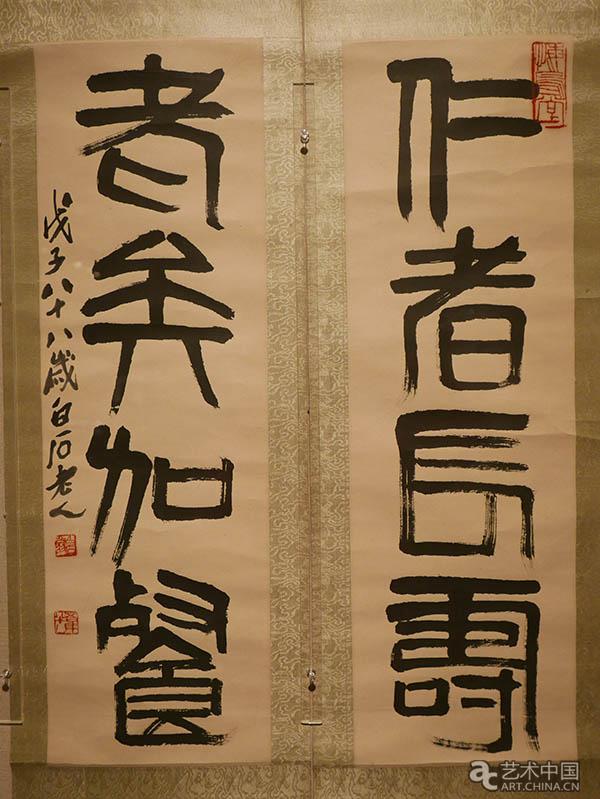 仁者長壽
老矣加餐
戊子八十八歲白石老人
艺术中国
ART.CHINA.CN